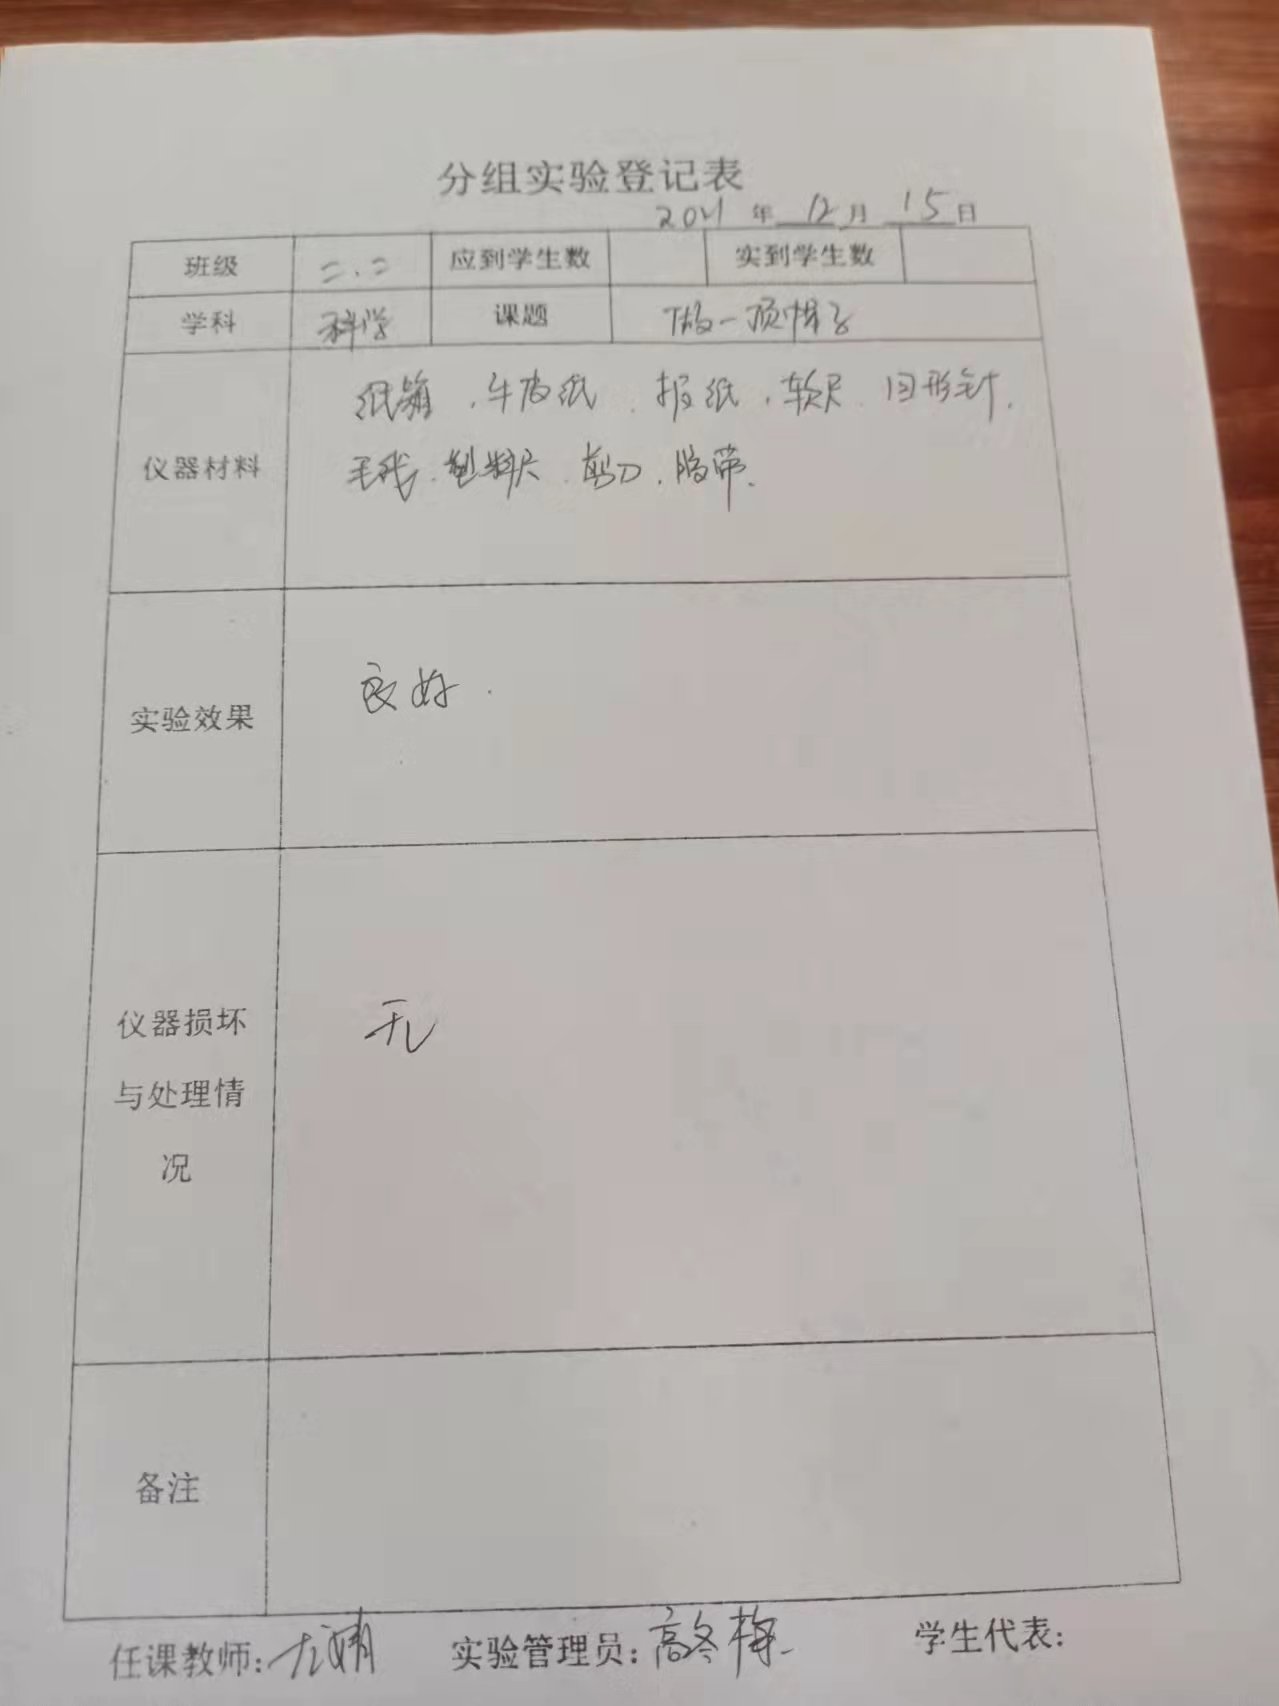 分组实验登记表
2021年12月15日
班级 二.二 应到学生数 实到学生数
学科 科学 课题 做一顶帽子
仪器材料 纸箱、牛皮纸、报纸、软尺、回形针、
毛线、塑料片、剪刀、胶带.
实验效果 良好.
仪器损坏
与处理情
况
无
备注
任课教师:尤婧 实验管理员:高冬梅 学生代表: